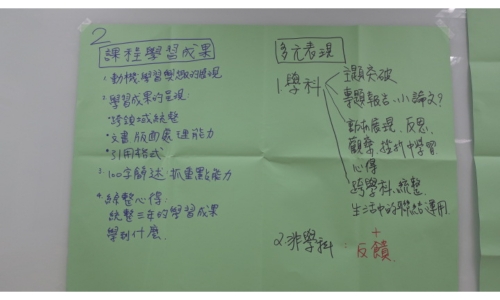 2
課程學習成果
1. 動機、學習興趣的展現
2. 學習成果的呈現:
・跨領域統整
・文書版面處理能力
・引用格式
3. 100字簡述:抓重點能力
* 統整心得
統整三年的學習成果
學到什麼.
多元表現
1. 學科
主題突破
專題報告.小論文?
動機展現.反思.
觀察、從中學習
心得
跨學科統整
生活中的聯結運用
+
2. 非學科:反饋.